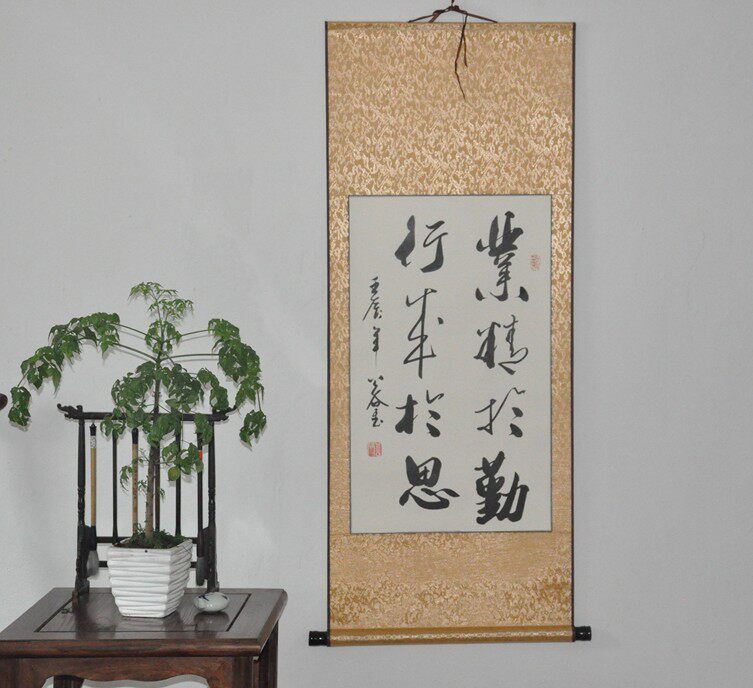 業精於勤
行成於思
壬辰年